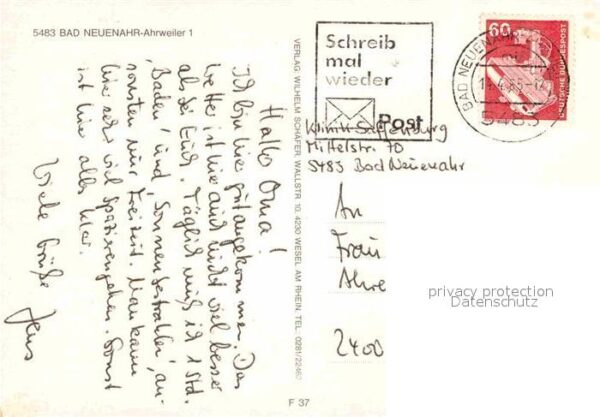 5483 BAD NEUENAHR-Ahrweiler 1
Hallo Oma!
Ich bin hier gut angekommen. Das
Wetter ist hier auch nicht viel besser
als bei Euch. Täglich muß ich 1 Std.
"Baden" und "Sonnenbestrahlen", an-
sonsten nur Freizeit. Man kann
hier sehr viel Spazierengehen. Sonst
ist hier alles klar.
Viele Grüße
Jens
VERLAG WILHELM SCHÄFER, WALLSTR 10, 4230 WESEL AM RHEIN, TEL. 0281/22460
F 37
Schreib
mal
wieder
Post
60
DEUTSCHE BUNDESPOST
BAD NEUENAHR
5483
Klinik
Mittelstr. 70
5483 Bad Neuenahr
An
Frau
Ahre
2400
privacy protection
Datenschutz